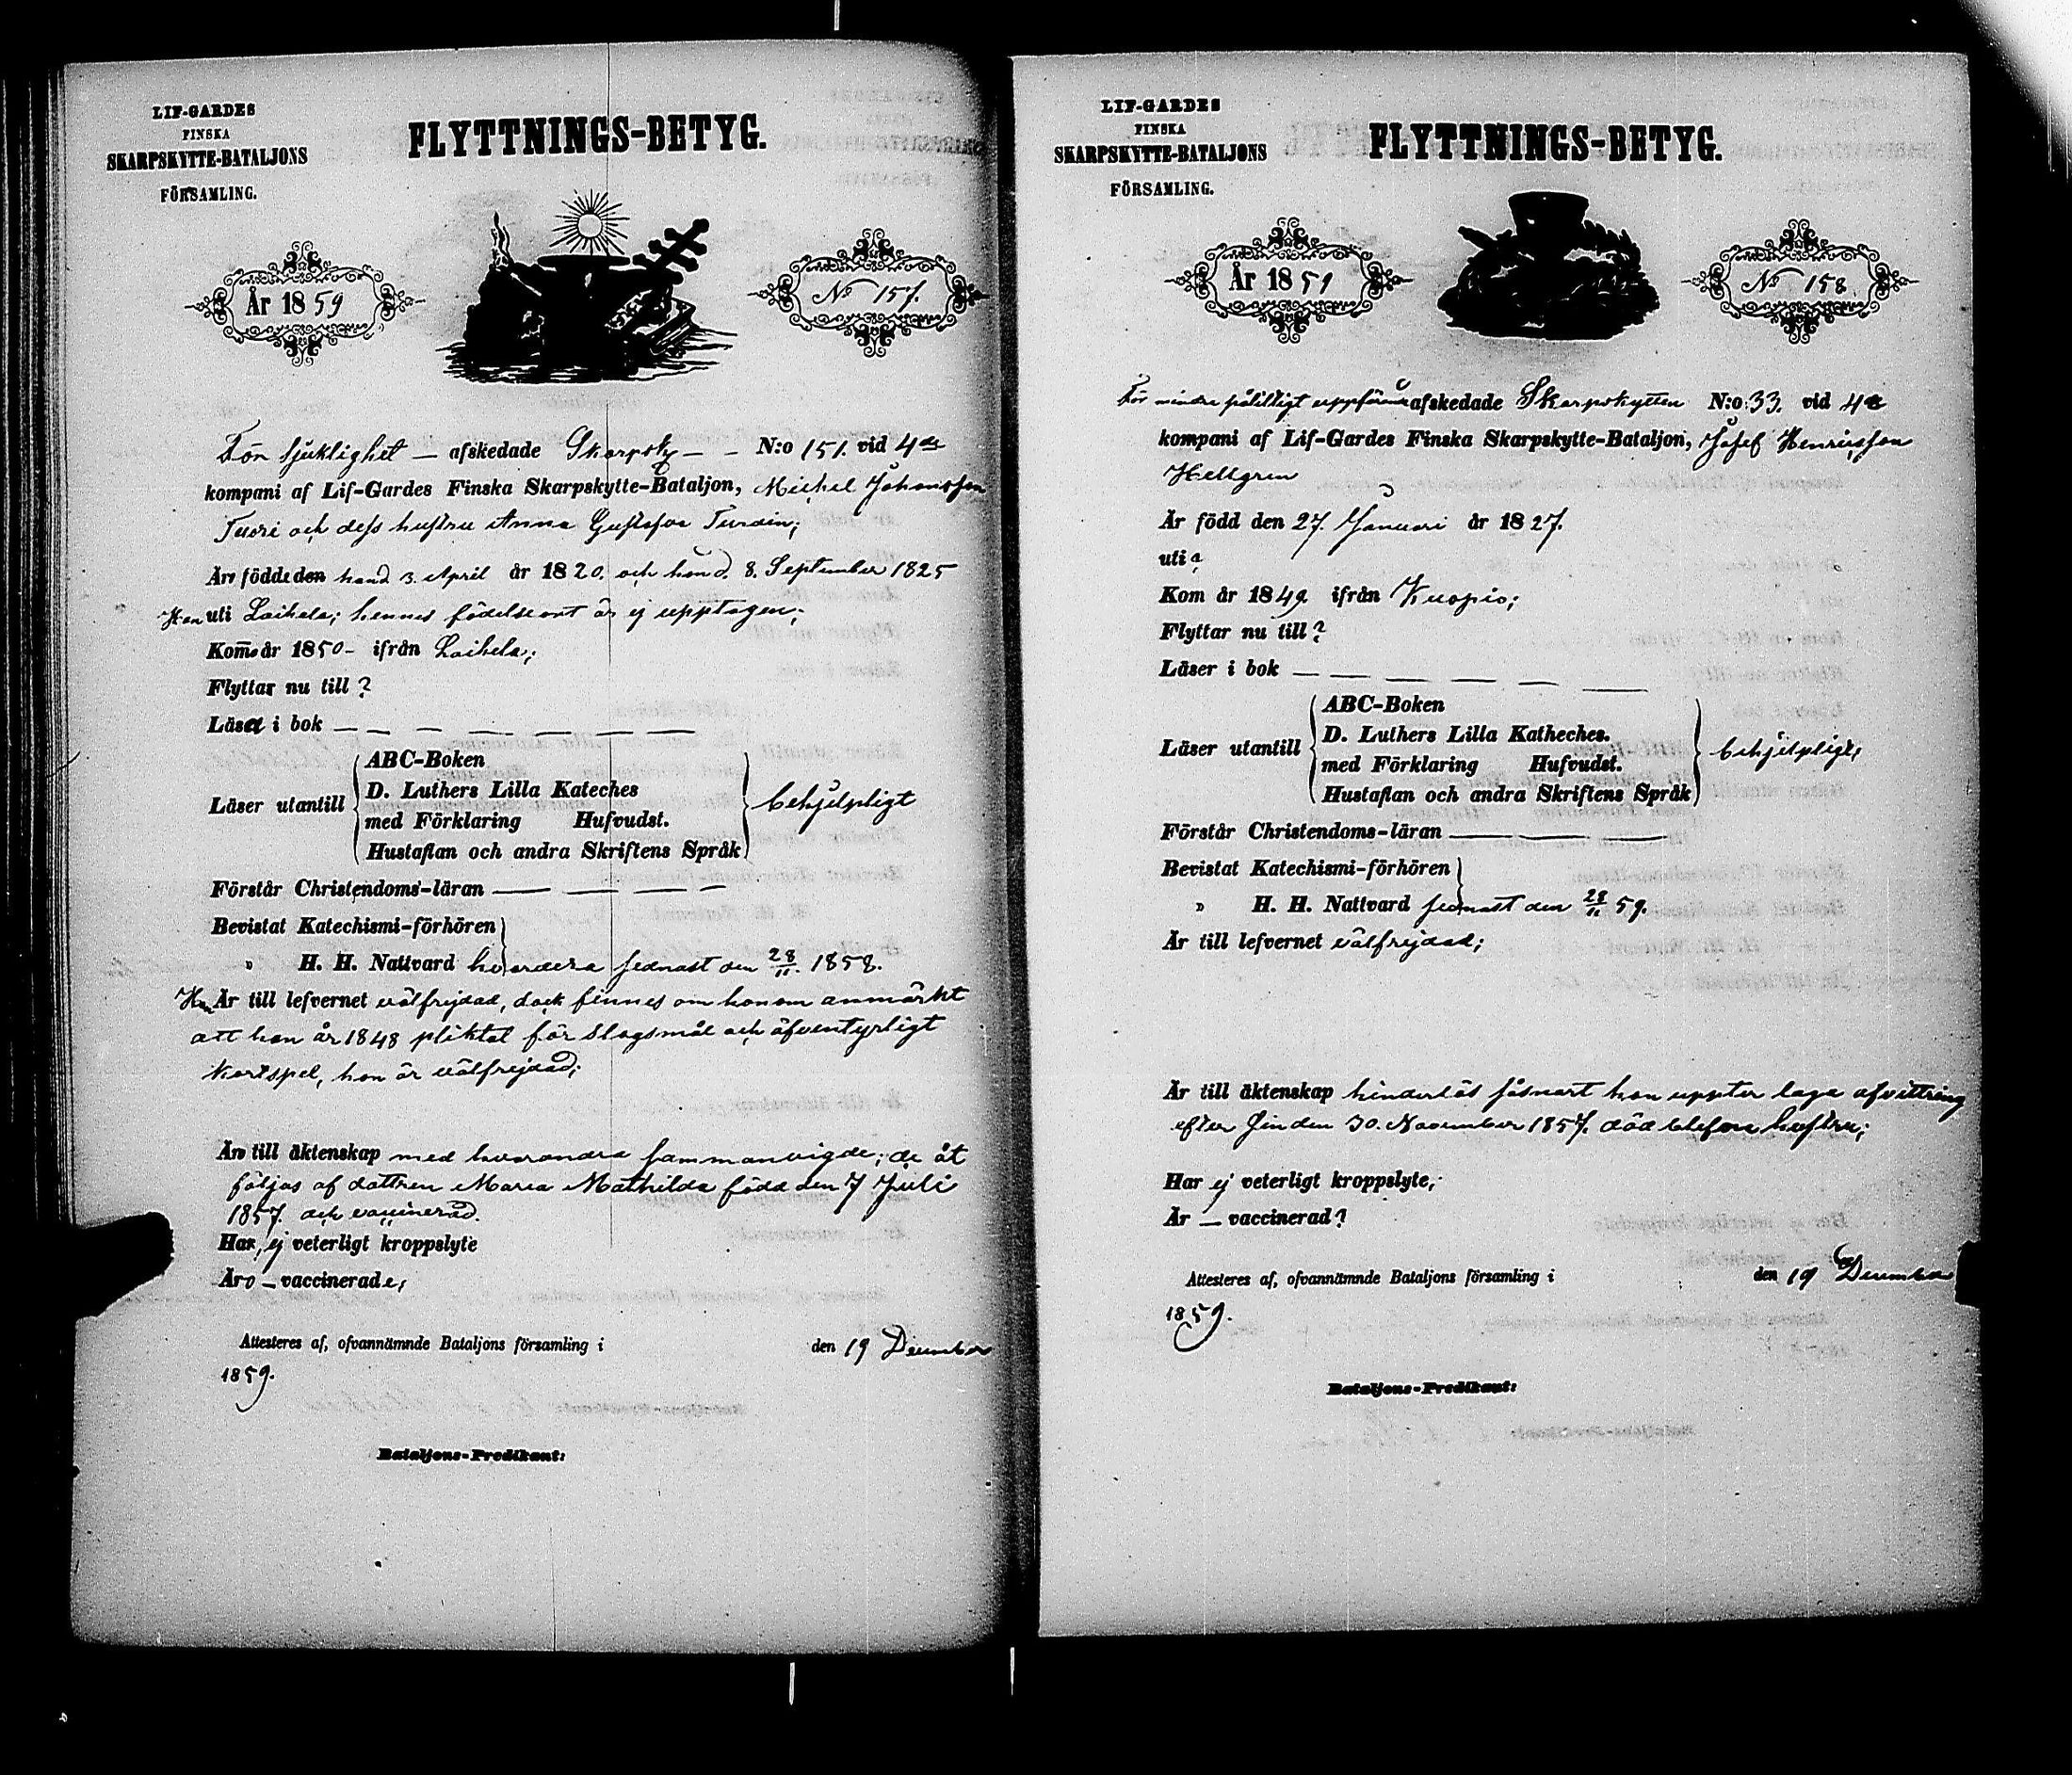 LIF-GARDES
FINSKA
SKARPSKYTTE-BATALJONS
FÖRSAMLING.
FLYTTNINGS-BETYG.
År 1859
No 157.
För sjuklighet — afskedade Skarpsky — – N:o 151. vid 4de
kompani af Lif-Gardes Finska Skarpskytte-Bataljon, Michel Johansson
Tuori och dess hustru Anna Gustafva Turdin;
Äro födde den hand 3. April år 1820. och hond. 8. September 1825
Han uti Laihela; hennes födelseort är ej upptagen;
Komo år 1850 – ifrån Laihela;
Flyttar nu till?
Läsa i bok — — — — — — —
Läser utantill
ABC-Boken
D. Luthers Lilla Kateches
med Förklaring Hufvudst.
Hustaflan och andra Skriftens Språk
behjelpligt
Förstår Christendoms-läran — — — —
Bevistat Katechismi-förhören
» H. H. Nattvard hvardera sednast den 28/11. 1858.
Han Är till lefvernet välfrejdad, dock finnes om honom anmärkt
att han år 1848 pliktat för slagsmål och äfventyrligt
kortspel, hon är välfrejdad;
Äro till äktenskap med hvarandra sammanvigde; de åt
följas af dottren Maria Mathilda född den 7 Juli
1857. och vaccinerad.
Har ej veterligt kroppslyte
Äro – vaccinerade,
Attesteres af, ofvannämnde Bataljons församling i den 19 December
1859.
Bataljons-Predikant:
LIF-GARDES
FINSKA
SKARPSKYTTE-BATALJONS
FÖRSAMLING.
FLYTTNINGS-BETYG.
År 1859
No 158.
För mindre pålitligt uppförande afskedade Skarpskytten N:o 33. vid 4de
kompani af Lif-Gardes Finska Skarpskytte-Bataljon, Josef Henriksson
Hellgren
Är född den 27. Januari år 1827.
uti?
Kom år 1849 ifrån Kuopio;
Flyttar nu till?
Läser i bok — — — — — —
Läser utantill
ABC-Boken
D. Luthers Lilla Katheches.
med Förklaring Hufvudst.
Hustaflan och andra Skriftens Språk
behjelpligt,
Förstår Christendoms-läran — — —
Bevistat Katechismi-förhören
» H. H. Nattvard sednast den 28/11 59.
Är till lefvernet välfrejdad;
Är till äktenskap hinderlös såsnart han uppter laga afvittring
efter sin den 30. November 1857. död blefna hustru;
Har ej veterligt kroppslyte,
Är — vaccinerad?
Attesteres af, ofvannämnde Bataljons församling i den 19 December
1859.
Bataljons-Predikant: